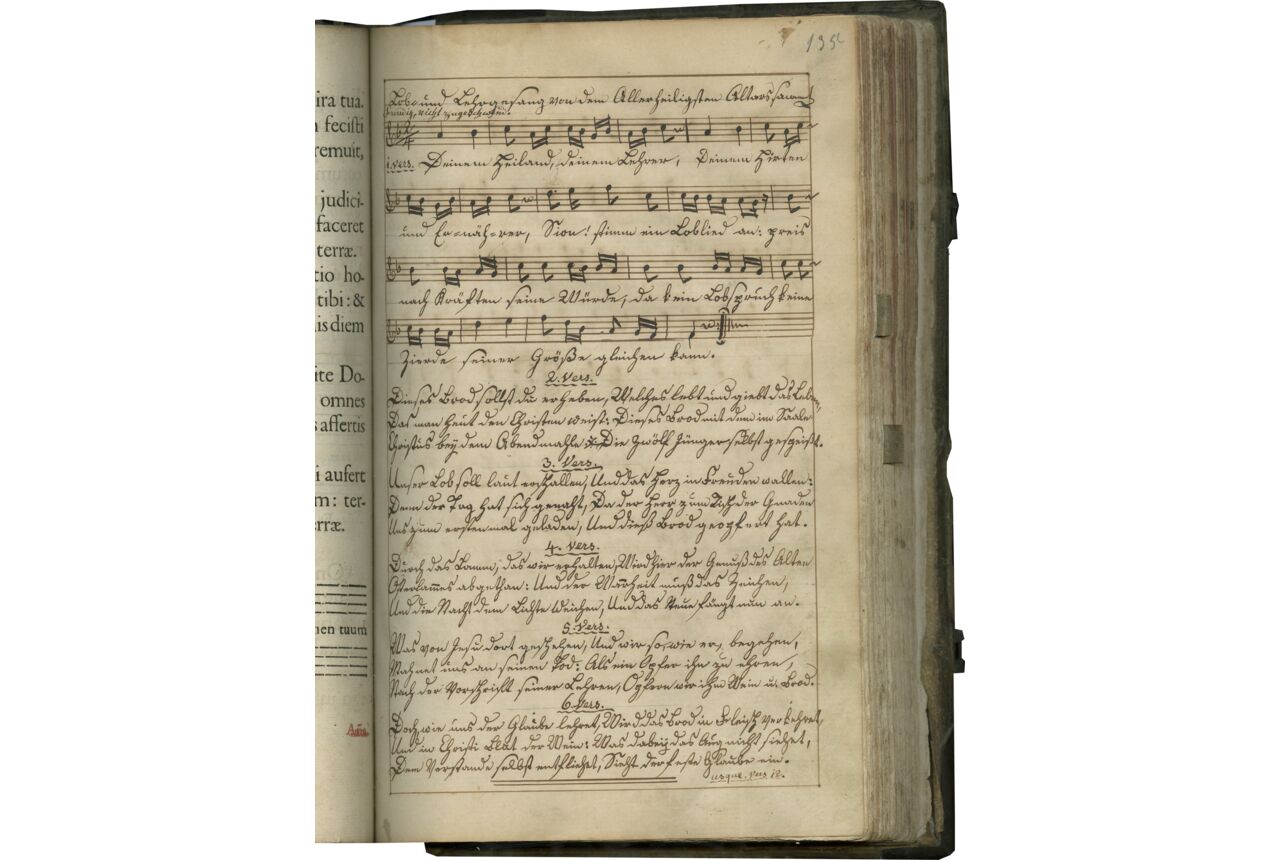 ira tua.
fecisti
remuit,
judici-
faceret
terræ.
tio ho-
tibi: &
is diem
ite Do-
omnes
s affertis
i aufert
m: ter-
erræ.
nen tuum
135
Lob- und Lehrgesang von dem Allerheiligsten Altarssacrament
1. Vers. Deinem Heiland, deinem Lehrer, Deinem Hirten
und Er-näh-rer, Sion! stimm ein Loblied an: preis
nach Kräften seine Würde, da kein Lobspruch keine
Zierde seiner Größe gleichen kann.
2. Vers.
Dieses Brod sollst du erheben, Welches lebt und giebt das Leben,
Das man heut den Christen weist: Dieses Brod mit dem im Saale
Christus bey dem Abendmahle Die Zwölf Jünger selbst gespeist.
3. Vers.
Unser Lob soll laut erschallen, Und das Herz in Freuden wallen:
Denn der Tag hat sich genaht, Da der Herr zum Tisch der Gnaden
Uns zum erstenmal geladen, Und dieß Brod geopfert hat.
4. Vers.
Durch das Lamm, das wir erhalten, Wird hier der Genuß des Alten
Osterlammes abgethan: Und der Warheit muß das Zeichen,
Und die Nacht dem Lichte Weichen, Und das Neue fängt nun an.
5. Vers.
Was von Jesu dort geschehen, Und wir so, wie er, begehen,
Mahnet uns an seinen Tod: Als ein Opfer ihn zu ehren,
Nach der Vorschrift seiner Lehren, Opfern wir ihm Wein u. Brod.
6. Vers.
Doch wie uns der Glaube lehret, Wird das Brod in Fleisch verkehret,
Und in Christi Blut der Wein: Was dabey das Aug nicht siehet,
Dem Verstande selbst entfliehet, Sieht der feste Glaube ein.
usque. Vers 12.